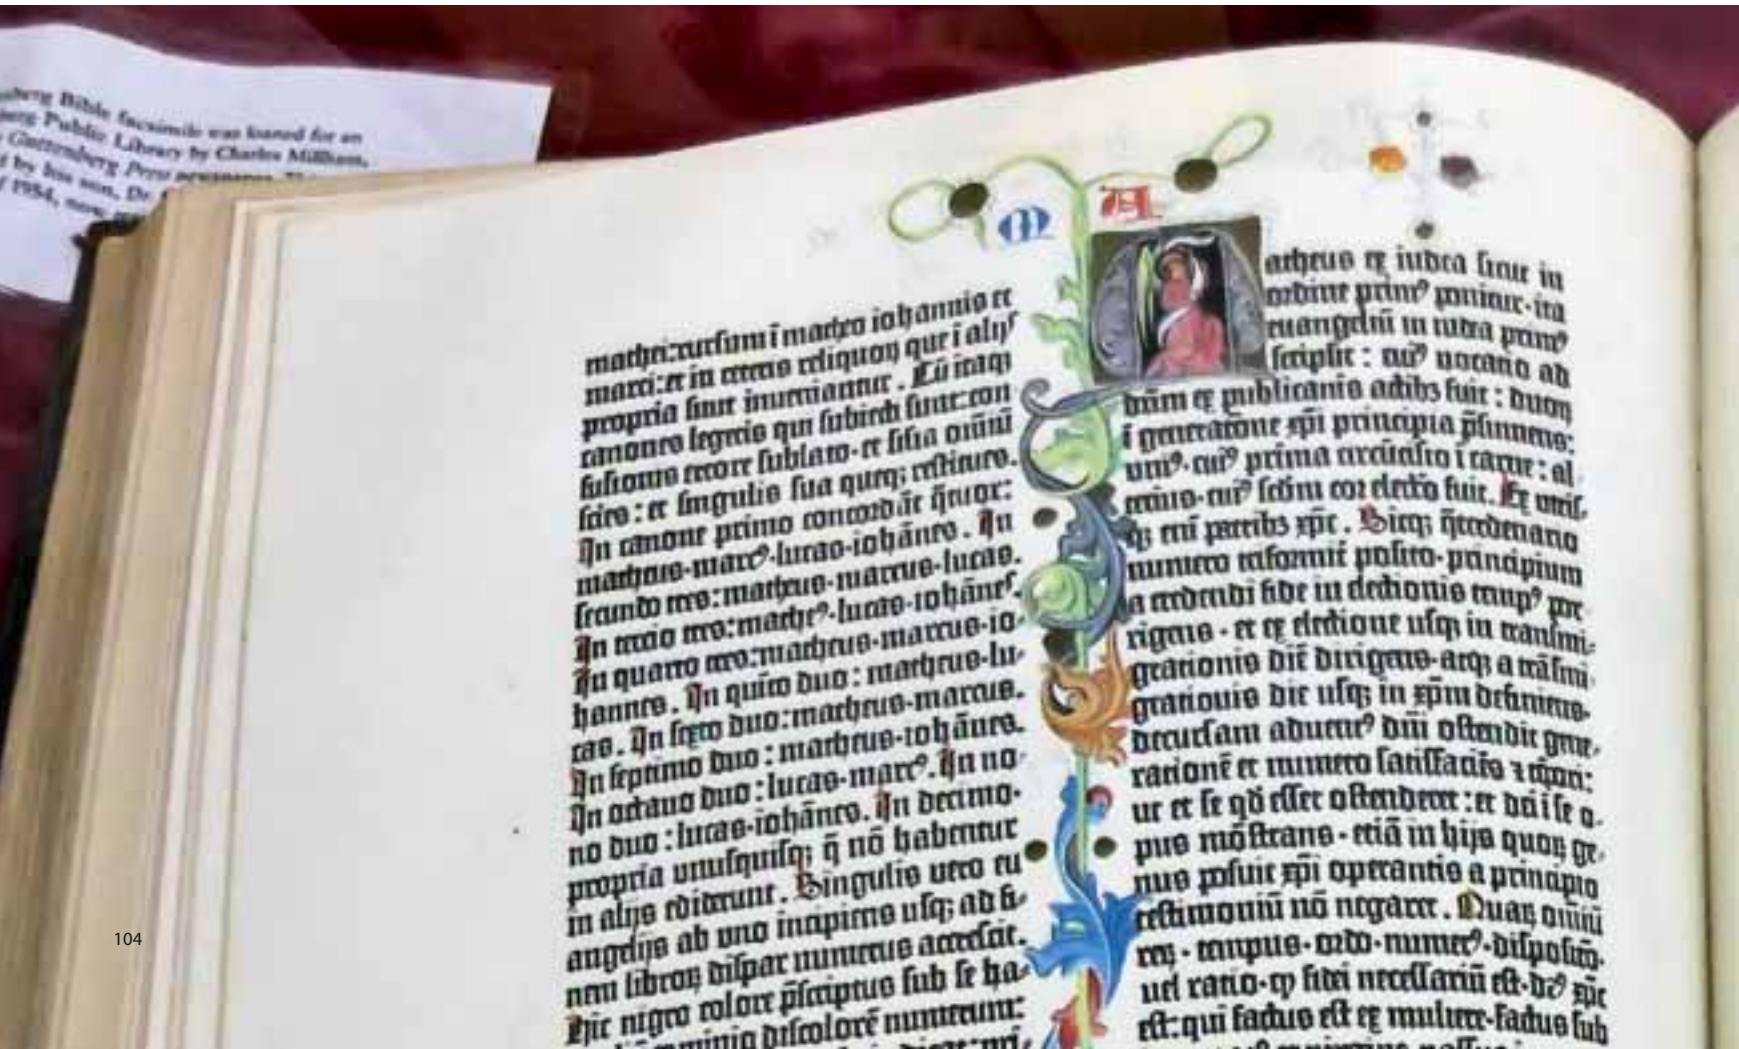 Bible facsimile was loaned for an
Public Library by Charles Millham,
Guttenberg Press newspaper.
by his son, Dr.
1984, now
M A
mathei: rursum ī matheo iohannis et
marci: et in ceteris reliquoꝝ que ī alijs
propria sunt inveniantur. Cū itaqꝫ
canones legeris qui subiecti sunt: con
fusionis errore sublato· et silia oīniū
scies: et singulis sua queqꝫ restitues.
In canone primo concordāt q̄tuor:
matheus·marcꝰ·lucas·iohānes. In
secundo tres: matheus·marcus·lucas.
In tercio tres: matheꝰ·lucas·iohānes.
In quarto tres: matheus·marcus·io-
hannes. In quīto duo: matheus·lu-
cas. In sexto duo: matheus·marcus.
In septimo duo: matheus·iohānes.
In octavo duo: lucas·marcꝰ. In no-
no duo: lucas·iohānes. In decimo·
propria unusquisqꝫ q̄ nō habentur
in alijs ediderunt. Singulis vero eu
angelijs ab uno incipiens usqꝫ ad fi-
nem libroꝝ dispar numerus accrescit.
Hic nigro colore p̄scriptus sub se ha-
discolorē numerum:
Matheus ex iudea sicut in
ordine primꝰ ponitur·ita
euangeliū in iudea primꝰ
scripsit: cuiꝰ vocatio ad
deum ex publicanis actibꝫ fuit: duoꝝ
ī generatione xp̄i principia p̄sumens:
uniꝰ·cuiꝰ prima circūcisio ī carne: al-
terius·cuiꝰ scd̄m cor electō fuit. Ex utris-
qꝫ enī patribꝫ xp̄c. Sicqꝫ q̄terdenario
numero triformit̄ posito·principium
a credendi fide in electionis tempꝰ por
rigens·et ex electione usqꝫ in transmi-
grationis diē dirigens·atqꝫ a trāsmi-
grationis die usqꝫ in xp̄m definiens·
decursam adventꝰ dn̄i ostendit gene-
rationē et numero satisfaciēs ⁊ tēpori:
ur et se qd̄ esset ostenderet: et dei ī se o-
pus mōstrans·etiā in hijs quoꝝ ge-
nus posuit xp̄i operantis a principio
testimoniū nō negaret. Quaꝝ oīniū
reꝝ·tempus·ordo·numerꝰ·dispositō·
vel ratio·ꝙ fidei necessariū est·deꝰ xp̄c
est: qui factus est ex muliere·factus sub
104